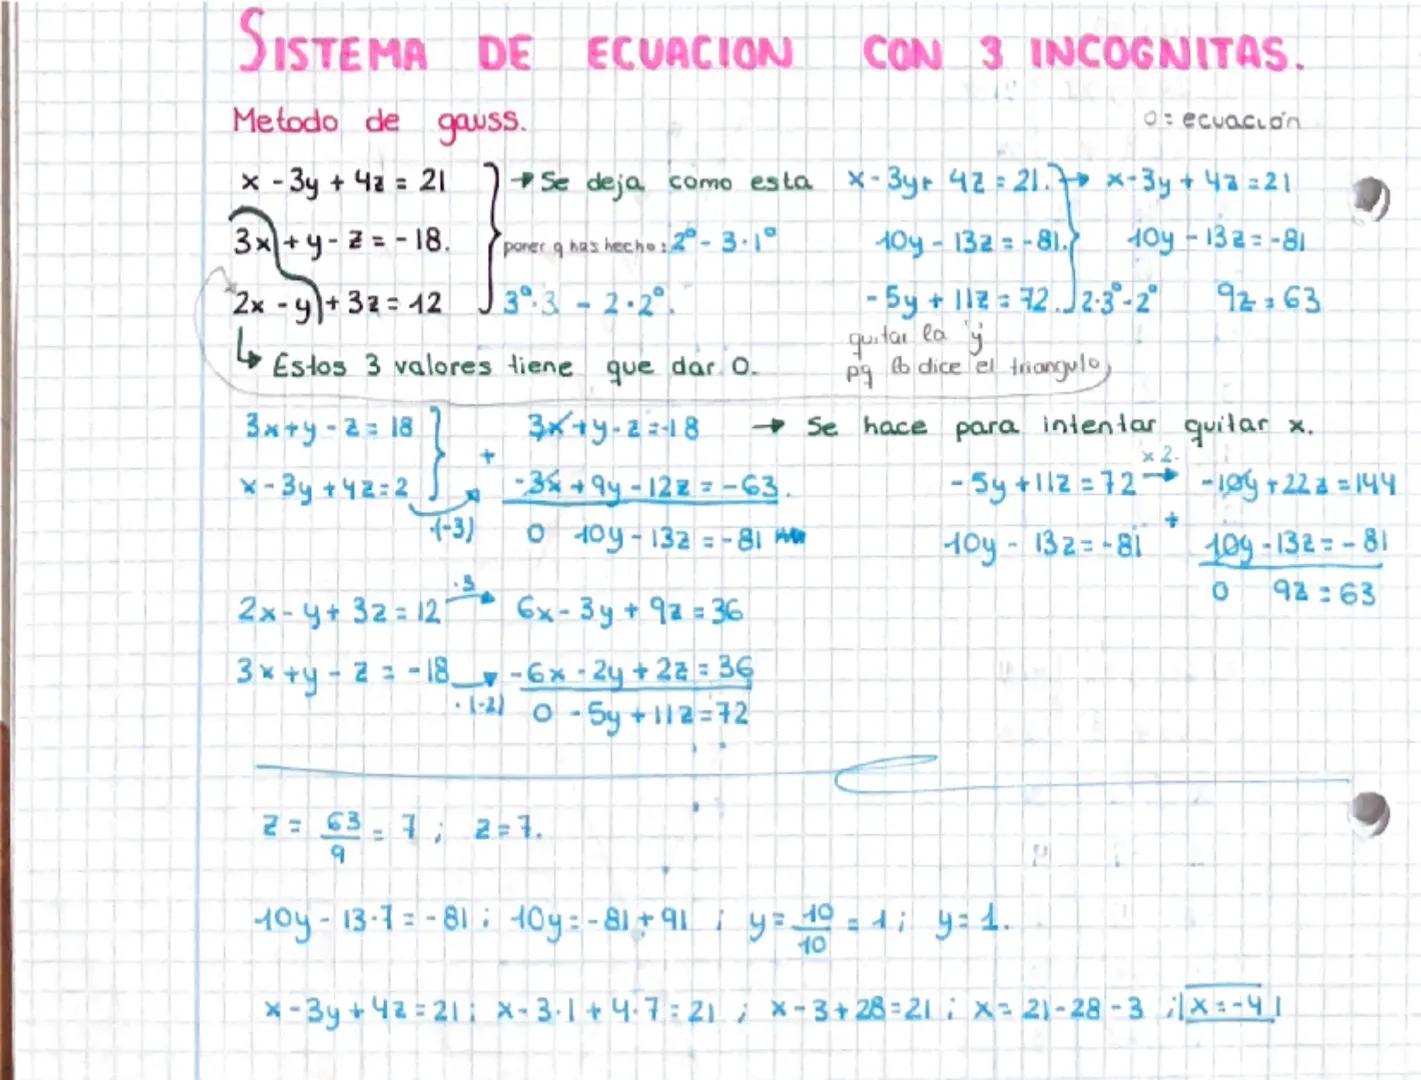 SISTEMA DE ECUACION CON 3 INCOGNITAS.
Metodo de gauss.
o = ecuación
x - 3y + 4z = 21 → Se deja como esta x - 3y + 4z = 21. → x - 3y + 4z = 21
3x + y - z = - 18. poner q has hecho: 2º - 3·1º 10y - 13z = - 81. 10y - 13z = - 81
2x - y + 3z = 12 3º·3 - 2·2º. - 5y + 11z = 72. 2·3º - 2º 9z = 63
↳ Estos 3 valores tiene que dar 0.
quitar la 'y'
pq lo dice el triangulo
3x + y - z = 18 3x + y - z = -18 → Se hace para intentar quitar x.
x - 3y + 4z = 2 + -3x + 9y - 12z = - 63.
·(-3) 0 10y - 13z = - 81
- 5y + 11z = 72 x2. → - 10y + 22z = 144
10y - 13z = - 81 + 10y - 13z = - 81
0 9z = 63
2x - y + 3z = 12 ·3 → 6x - 3y + 9z = 36
3x + y - z = - 18 ·(-2) - 6x - 2y + 2z = 36
0 - 5y + 11z = 72
z = 63/9 = 7 ; z = 7.
10y - 13·7 = - 81 ; 10y = - 81 + 91 ; y = 10/10 = 1 ; y = 1.
x - 3y + 4z = 21 ; x - 3·1 + 4·7 = 21 ; x - 3 + 28 = 21 ; x = 21 - 28 - 3 ; x = - 4